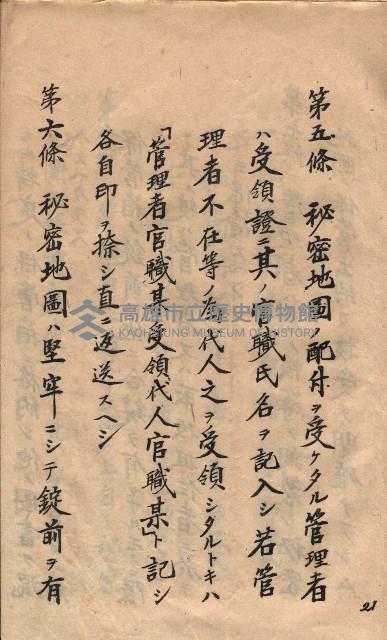 第五條　秘密地圖ノ配付ヲ受ケタル管理者
ハ受領證ニ其ノ官職氏名ヲ記入シ若管
理者不在等ノ爲代人之ヲ受領シタルトキハ
「管理者官職某受領代人官職某」ト記シ
各自印ヲ捺シ直ニ返送スヘシ
第六條　秘密地圖ハ堅牢ニシテ錠前ヲ有
21
高雄市立歷史博物館
KAOHSIUNG MUSEUM OF HISTORY